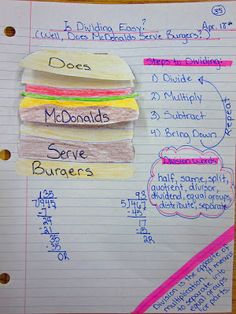 35
Is Dividing Easy?
Apr. 18th
(Well, Does McDonalds Serve Burgers?)
Does
McDonalds
Serve
Burgers
Steps to Dividing:
1) Divide
2) Multiply
3) Subtract
4) Bring Down
Repeat
Division Words
half, same, split,
quotient, divisor,
dividend, equal groups,
distribute, separate
135
-21
35
-35
0R
93
5)467
-45
17
-15
2R
Division is the opposite of
multiplication. It means
to separate into
equal groups
or parts.